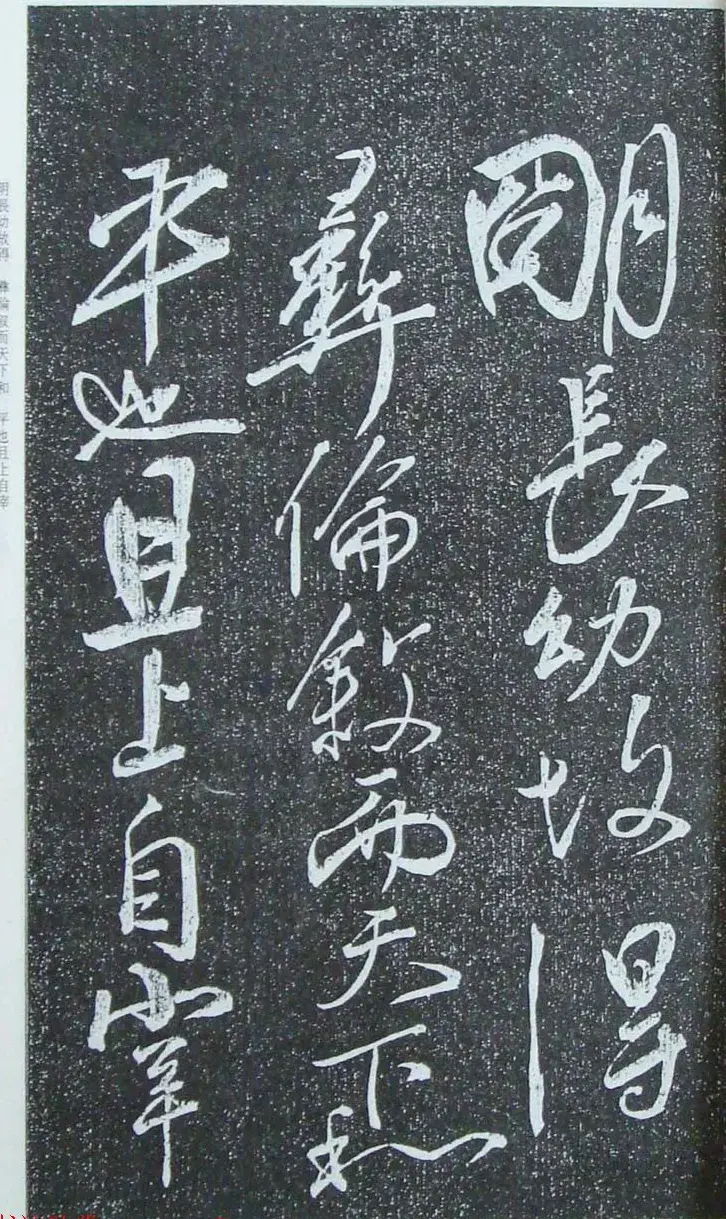 明長幼故得
彝倫敘而天下和
平也且上自宰
明長幼故得 彝倫敘而天下和 平也且上自宰